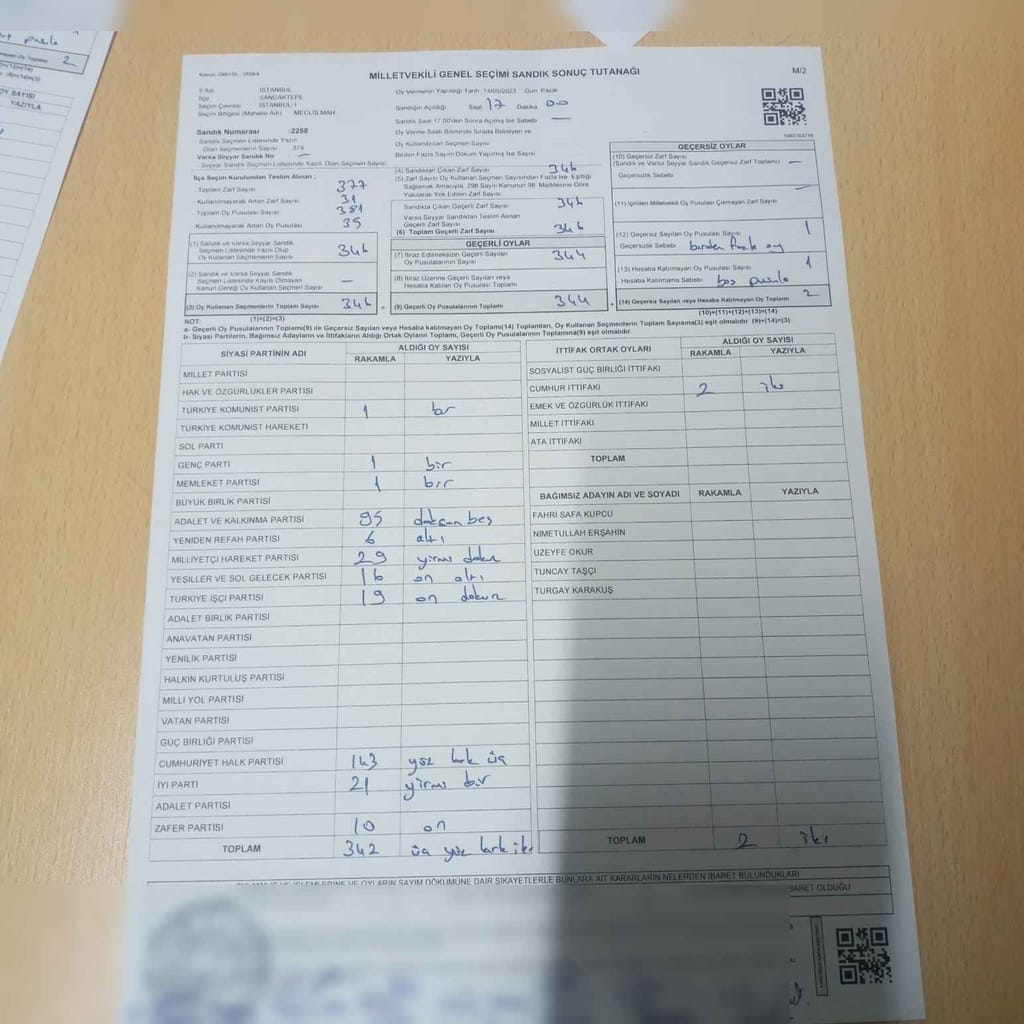 MİLLETVEKİLİ GENEL SEÇİMİ SANDIK SONUÇ TUTANAĞI
M/2
İl Adı İSTANBUL
İlçe SANCAKTEPE
Seçim Çevresi İSTANBUL-1
Seçim Bölgesi (Mahalle Adı) MECLİS MAH
Sandık Numarası :2258
Sandık Seçmen Listesinde Yazılı
Olan Seçmenlerin Sayısı 374
Varsa Seyyar Sandık No —
Seyyar Sandık Seçmen Listesinde Yazılı Olan Seçmen Sayısı
Oy Vermenin Yapıldığı Tarih 14/05/2023 Gün Pazar
Sandığın Açıldığı Saat 17 Dakika 00
Sandık Saat 17.00'den Sonra Açılmış İse Sebebi —
Oy Verme Saati Bitiminde Sırada Bekleyen ve
Oy Kullandırılan Seçmen Sayısı
Birden Fazla Sayım Döküm Yapılmış İse Sayısı
İlçe Seçim Kurulundan Teslim Alınan ;
Toplam Zarf Sayısı 377
Kullanılmayarak Artan Zarf Sayısı 31
Toplam Oy Pusulası Sayısı 381
Kullanılmayarak Artan Oy Pusulası 35
(1) Sandık ve Varsa Seyyar Sandık
Seçmen Listesinde Yazılı Olup
Oy Kullanan Seçmen Sayısı 346
(2) Sandık ve Varsa Seyyar Sandık
Seçmen Listesinde Kayıtlı Olmayan
Kanun Gereği Oy Kullanan Seçmen Sayısı —
(3) Oy Kullanan Seçmenlerin Toplam Sayısı 346
(1)+(2)=(3)
(4) Sandıktan Çıkan Zarf Sayısı 346
(5) Zarf Sayısı Oy Kullanan Seçmen Sayısından Fazla İse; Eşitliği
Sağlamak Amacıyla, 298 Sayılı Kanunun 98. Maddesine Göre
Yakılarak Yok Edilen Zarf Sayısı
Sandıkta Çıkan Geçerli Zarf Sayısı 346
Varsa Seyyar Sandıktan Teslim Alınan
Geçerli Zarf Sayısı
(6) Toplam Geçerli Zarf Sayısı 346
GEÇERLİ OYLAR
(7) İtiraz Edilmeksizin Geçerli Sayılan
Oy Pusulalarının Sayısı 344
(8) İtiraz Üzerine Geçerli Sayılan veya
Hesaba Katılan Oy Pusulaları Toplamı
(9) Geçerli Oy Pusulalarının Toplamı 344
GEÇERSİZ OYLAR
(10) Geçersiz Zarf Sayısı
(Sandık ve Varsa Seyyar Sandık Geçersiz Zarf Toplamı) —
Geçersizlik Sebebi
(11) İçinden Milletvekili Oy Pusulası Çıkmayan Zarf Sayısı
(12) Geçersiz Sayılan Oy Pusulası Sayısı 1
Geçersizlik Sebebi birden fazla oy
(13) Hesaba Katılmayan Oy Pusulası Sayısı 1
Hesaba Katılmama Sebebi boş pusula
(14) Geçersiz Sayılan veya Hesaba Katılmayan Oy Toplamı 2
(10)+(11)+(12)+(13)=(14)
NOT:
a- Geçerli Oy Pusulalarının Toplamı(9) ile Geçersiz Sayılan veya Hesaba katılmayan Oy Toplamı(14) Toplamları, Oy Kullanan Seçmenlerin Toplam Sayısına(3) eşit olmalıdır (9)+(14)=(3)
b- Siyasi Partilerin, Bağımsız Adayların ve İttifakların Aldığı Ortak Oyların Toplamı, Geçerli Oy Pusulalarının Toplamına(9) eşit olmalıdır
SİYASİ PARTİNİN ADI ALDIĞI OY SAYISI
RAKAMLA YAZIYLA
MİLLET PARTİSİ
HAK VE ÖZGÜRLÜKLER PARTİSİ
TÜRKİYE KOMÜNİST PARTİSİ 1 bir
TÜRKİYE KOMÜNİST HAREKETİ
SOL PARTİ
GENÇ PARTİ 1 bir
MEMLEKET PARTİSİ 1 bir
BÜYÜK BİRLİK PARTİSİ
ADALET VE KALKINMA PARTİSİ 95 doksan beş
YENİDEN REFAH PARTİSİ 6 altı
MİLLİYETÇİ HAREKET PARTİSİ 29 yirmi dokuz
YEŞİLLER VE SOL GELECEK PARTİSİ 16 on altı
TÜRKİYE İŞÇİ PARTİSİ 19 on dokuz
ADALET BİRLİK PARTİSİ
ANAVATAN PARTİSİ
YENİLİK PARTİSİ
HALKIN KURTULUŞ PARTİSİ
MİLLİ YOL PARTİSİ
VATAN PARTİSİ
GÜÇ BİRLİĞİ PARTİSİ
CUMHURİYET HALK PARTİSİ 143 yüz kırk üç
İYİ PARTİ 21 yirmi bir
ADALET PARTİSİ
ZAFER PARTİSİ 10 on
TOPLAM 342 üç yüz kırk iki
İTTİFAK ORTAK OYLARI ALDIĞI OY SAYISI
RAKAMLA YAZIYLA
SOSYALİST GÜÇ BİRLİĞİ İTTİFAKI
CUMHUR İTTİFAKI 2 iki
EMEK VE ÖZGÜRLÜK İTTİFAKI
MİLLET İTTİFAKI
ATA İTTİFAKI
TOPLAM
BAĞIMSIZ ADAYIN ADI VE SOYADI RAKAMLA YAZIYLA
FAHRİ SAFA KÜPCÜ
NİMETULLAH ERŞAHİN
ÜZEYFE OKUR
TUNCAY TAŞÇI
TURGAY KARAKUŞ
TOPLAM 2 iki
İŞLEMLERİNE VE OYLARIN SAYIM DÖKÜMÜNE DAİR ŞİKAYETLERLE BUNLARA AİT KARARLARIN NELERDEN İBARET BULUNDUKLARI
İBARET OLDUĞU